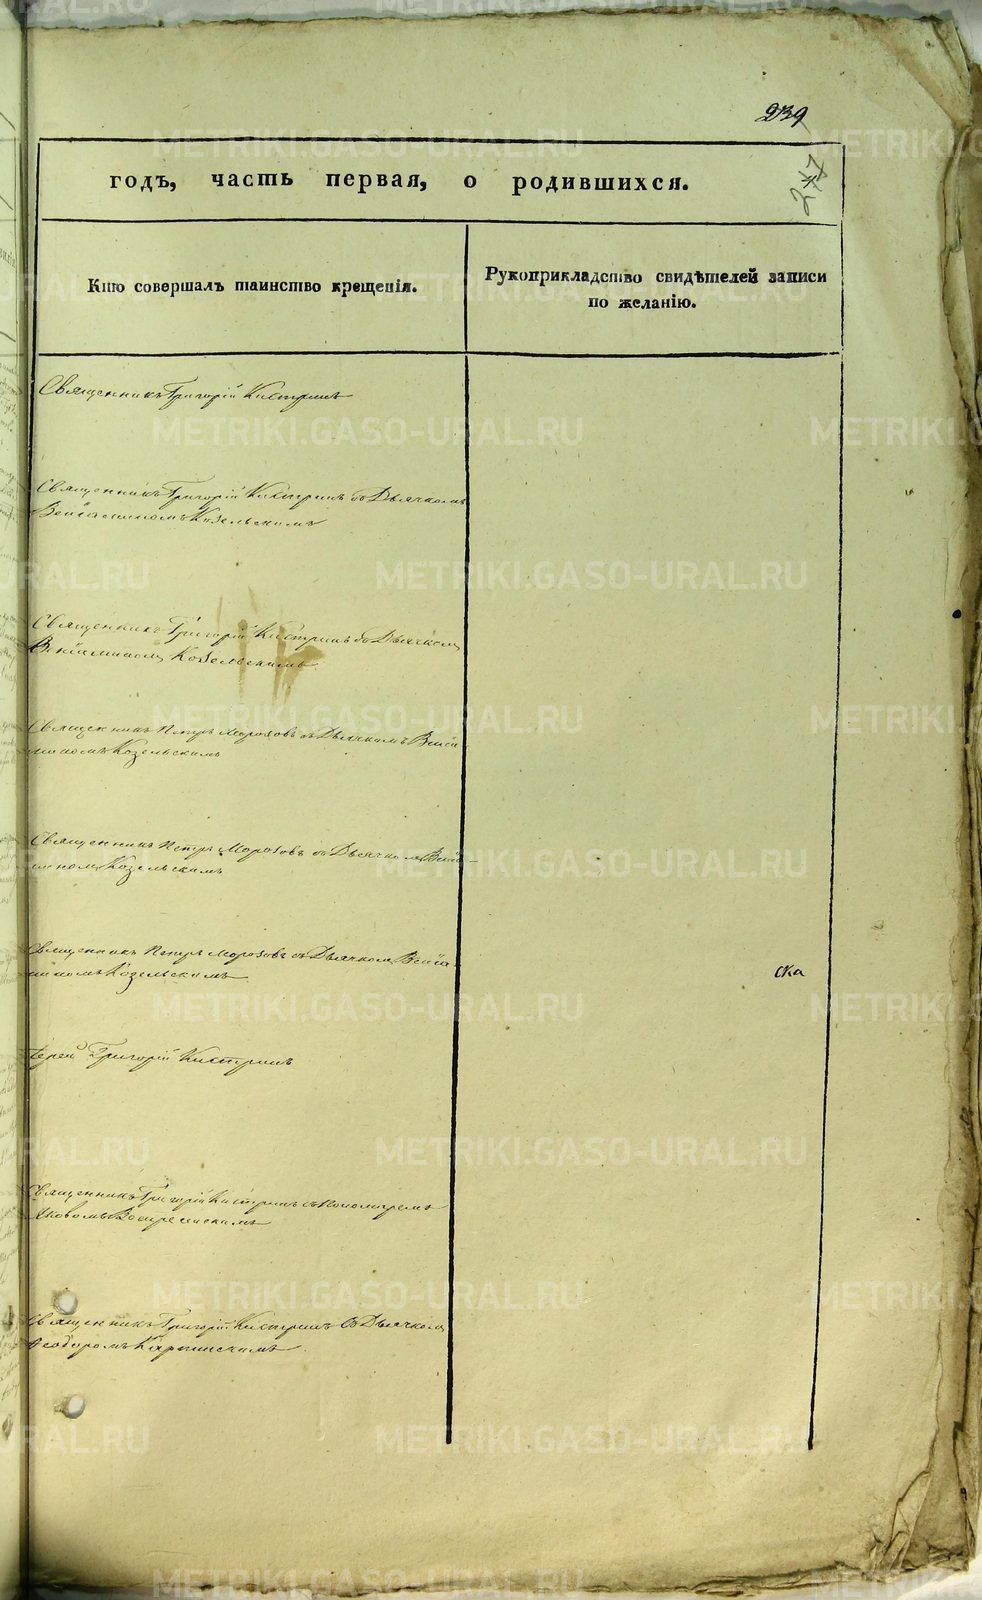 239
годъ, часть первая, о родившихся.
Кто совершалъ таинство крещенія.
Рукоприкладство свидѣтелей записи
по желанію.
Священникъ Григорій Кистринъ
Священникъ Григорій Кистринъ съ Дьячкомъ
Веніаминомъ Козельскимъ
Священникъ Григорій Кистринъ съ Дьячкомъ
Веніаминомъ Козельскимъ
Священникъ Петръ Морозовъ съ Дьячкомъ Венiа-
миномъ Козельскимъ
Священникъ Петръ Морозовъ съ Дьячкомъ Веніа-
миномъ Козельскимъ
Священникъ Петръ Морозовъ съ Дьячкомъ Веніа-
миномъ Козельскимъ
ска
Іерей Григорій Кистринъ
Священникъ Григорій Кистринъ съ Пономаремъ
Яковомъ Воскресенскимъ
Священникъ Григорій Кистринъ съ Дьячкомъ
Ѳеодоромъ Карпинскимъ
METRIKI.GASO-URAL.RU